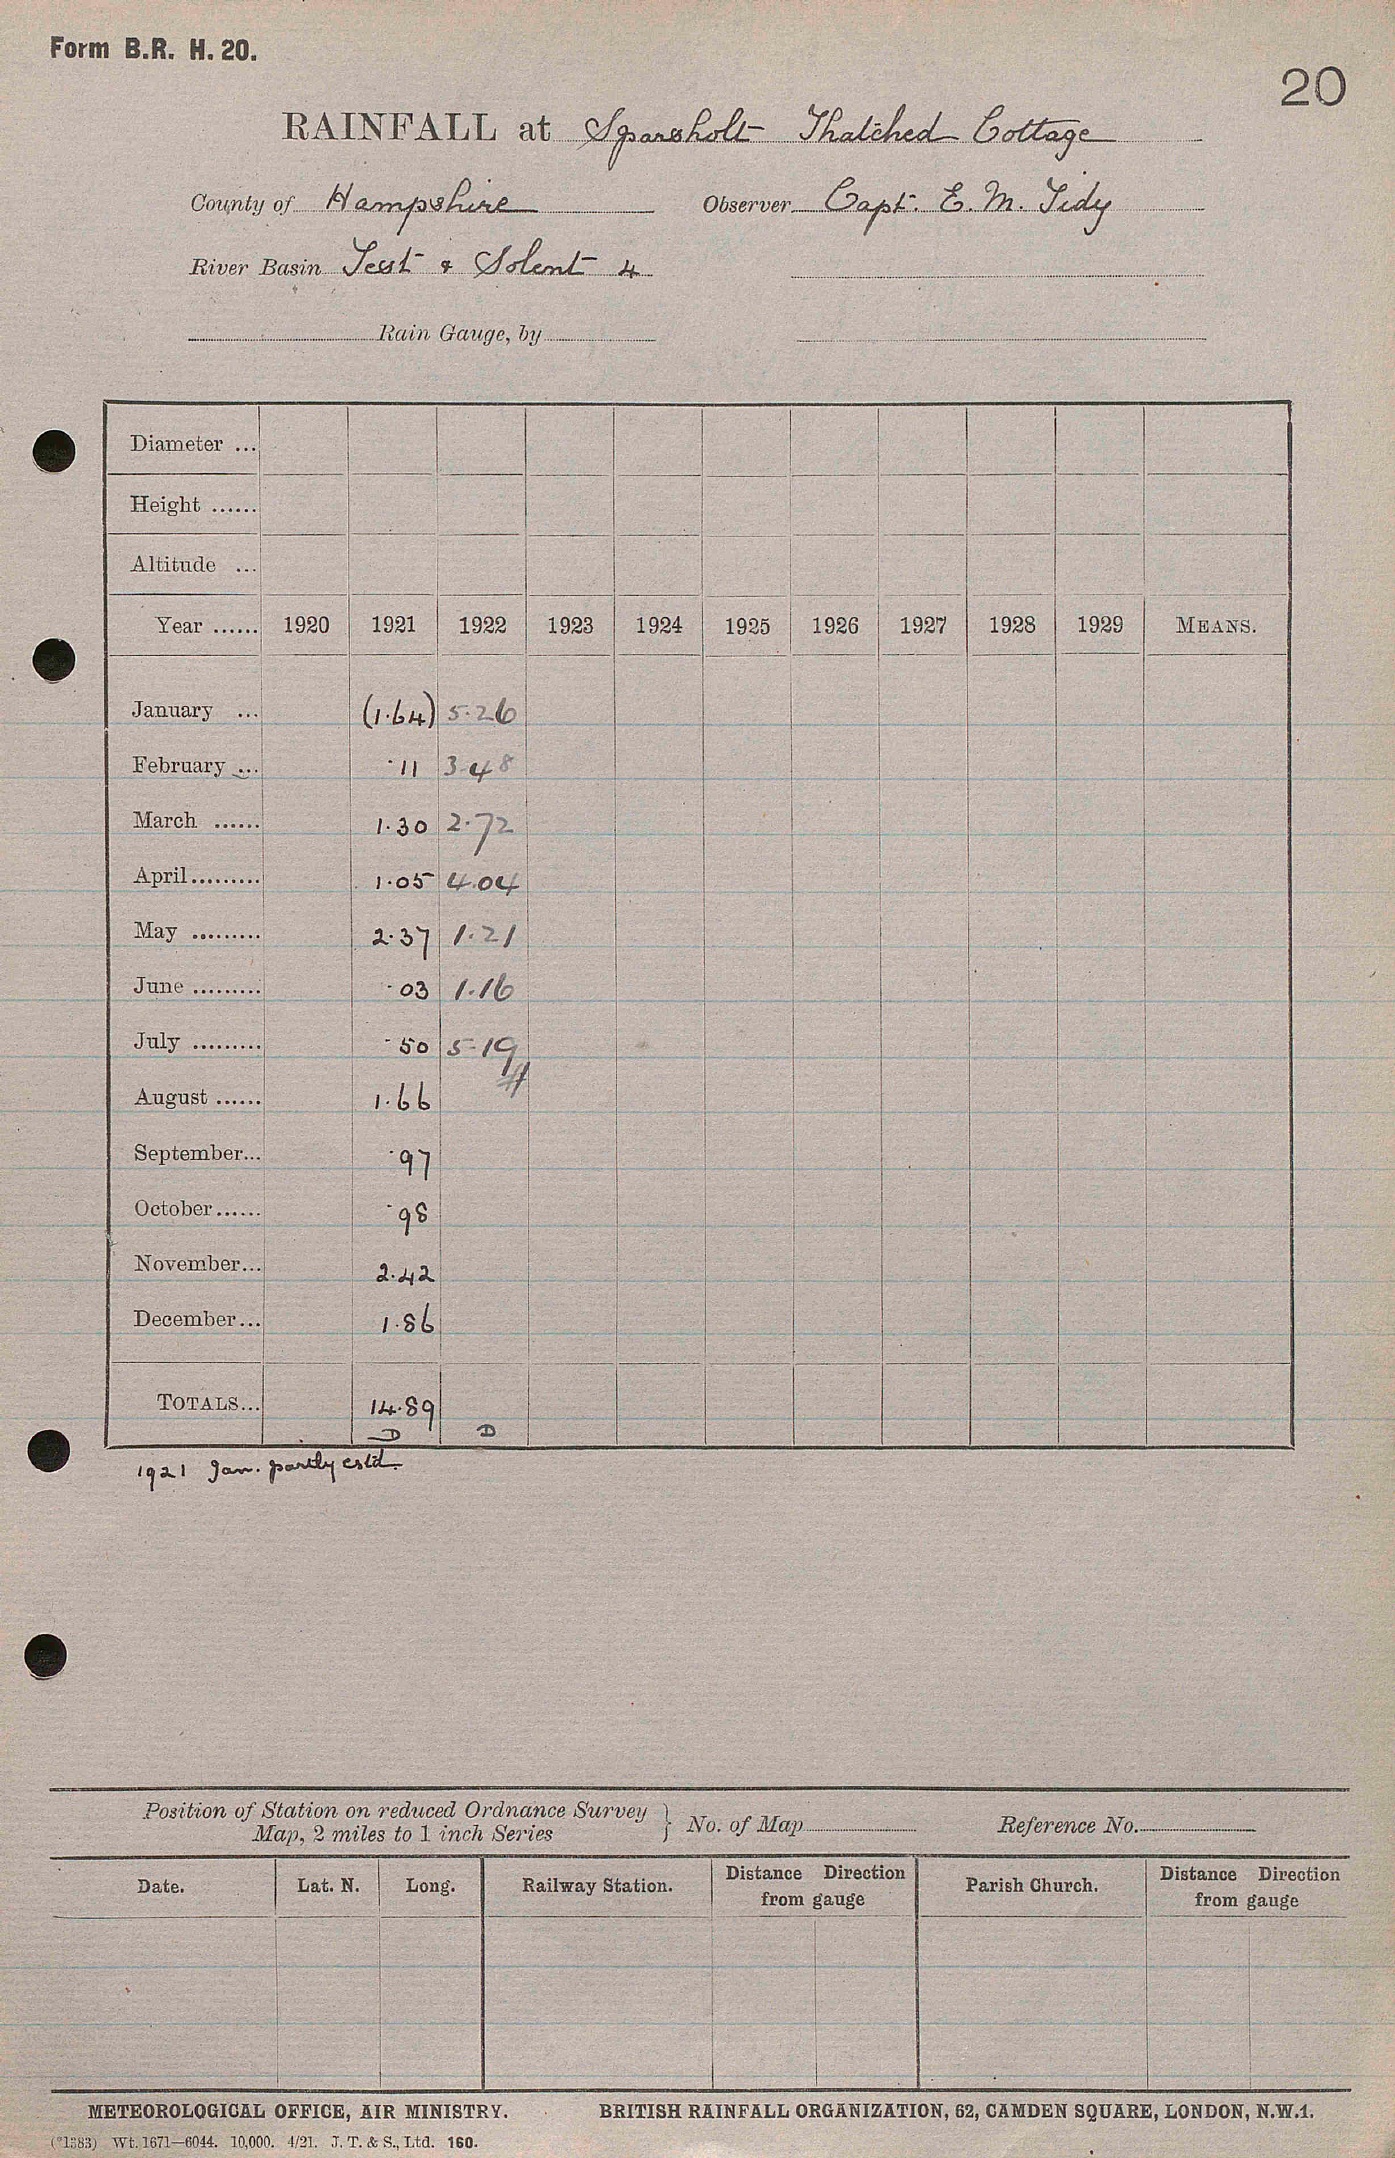 Form B.R. H. 20.
20
RAINFALL at Sparsholt Thatched Cottage
County of Hampshire Observer Capt. E. M. Tidy
River Basin Test & Solent 4
Rain Gauge, by
Diameter ...
Height ......
Altitude ...
Year ...... 1920 1921 1922 1923 1924 1925 1926 1927 1928 1929 MEANS.
January ... (1.64) 5.26
February ... .11 3.48
March ...... 1.30 2.72
April......... 1.05 4.04
May ......... 2.37 1.21
June ......... .03 1.16
July ......... .50 5.19
August ...... 1.66
September... .97
October...... .98
November... 2.42
December... 1.86
TOTALS... 14.89
D D
1921 Jan. partly estd.
Position of Station on reduced Ordnance Survey
Map, 2 miles to 1 inch Series } No. of Map Reference No.
Date. Lat. N. Long. Railway Station. Distance Direction from gauge Parish Church. Distance Direction from gauge
METEOROLOGICAL OFFICE, AIR MINISTRY. BRITISH RAINFALL ORGANIZATION, 62, CAMDEN SQUARE, LONDON, N.W.1.
(*1383) Wt. 1671—6044. 10,000. 4/21. J. T. & S., Ltd. 160.